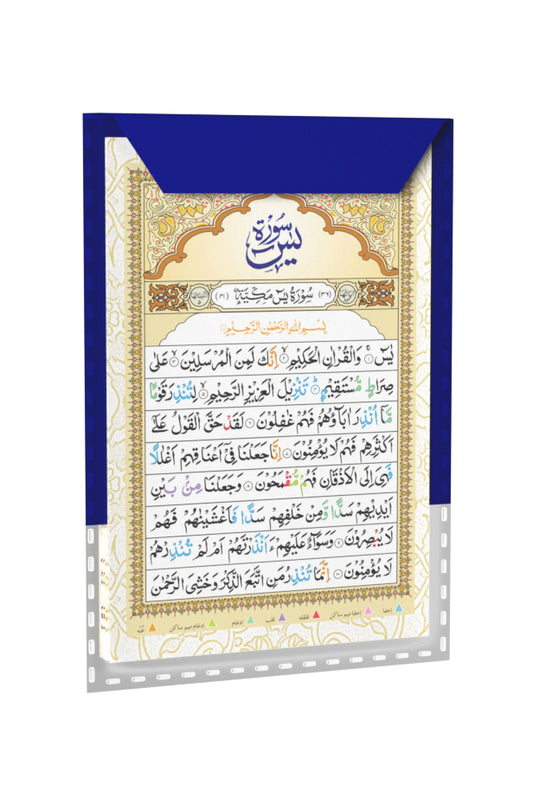 سُورَة يٰسٓ
(٣٦) سُوْرَةُ يٰسٓ مَكِّيَّةٌ (٤١)
بِسْمِ اللهِ الرَّحْمٰنِ الرَّحِيْمِ
يٰسٓ ۚ وَالْقُرْاٰنِ الْحَكِيْمِ ۙ اِنَّكَ لَمِنَ الْمُرْسَلِيْنَ ۙ عَلٰى
صِرَاطٍ مُّسْتَقِيْمٍ ۗ تَنْزِيْلَ الْعَزِيْزِ الرَّحِيْمِ ۙ لِتُنْذِرَ قَوْمًا
مَّاۤ اُنْذِرَ اٰبَآؤُهُمْ فَهُمْ غٰفِلُوْنَ لَقَدْ حَقَّ الْقَوْلُ عَلٰٓى
اَكْثَرِهِمْ فَهُمْ لَا يُؤْمِنُوْنَ اِنَّا جَعَلْنَا فِيْۤ اَعْنَاقِهِمْ اَغْلٰلًا
فَهِيَ اِلَى الْاَذْقَانِ فَهُمْ مُّقْمَحُوْنَ وَجَعَلْنَا مِنْۢ بَيْنِ
اَيْدِيْهِمْ سَدًّا وَّمِنْ خَلْفِهِمْ سَدًّا فَاَغْشَيْنٰهُمْ فَهُمْ
لَا يُبْصِرُوْنَ وَسَوَآءٌ عَلَيْهِمْ ءَاَنْذَرْتَهُمْ اَمْ لَمْ تُنْذِرْهُمْ
لَا يُؤْمِنُوْنَ اِنَّمَا تُنْذِرُ مَنِ اتَّبَعَ الذِّكْرَ وَخَشِيَ الرَّحْمٰنَ
اخفا اخفا میم ساکن قلقله قلب ادغام ادغام میم ساکن غنّه